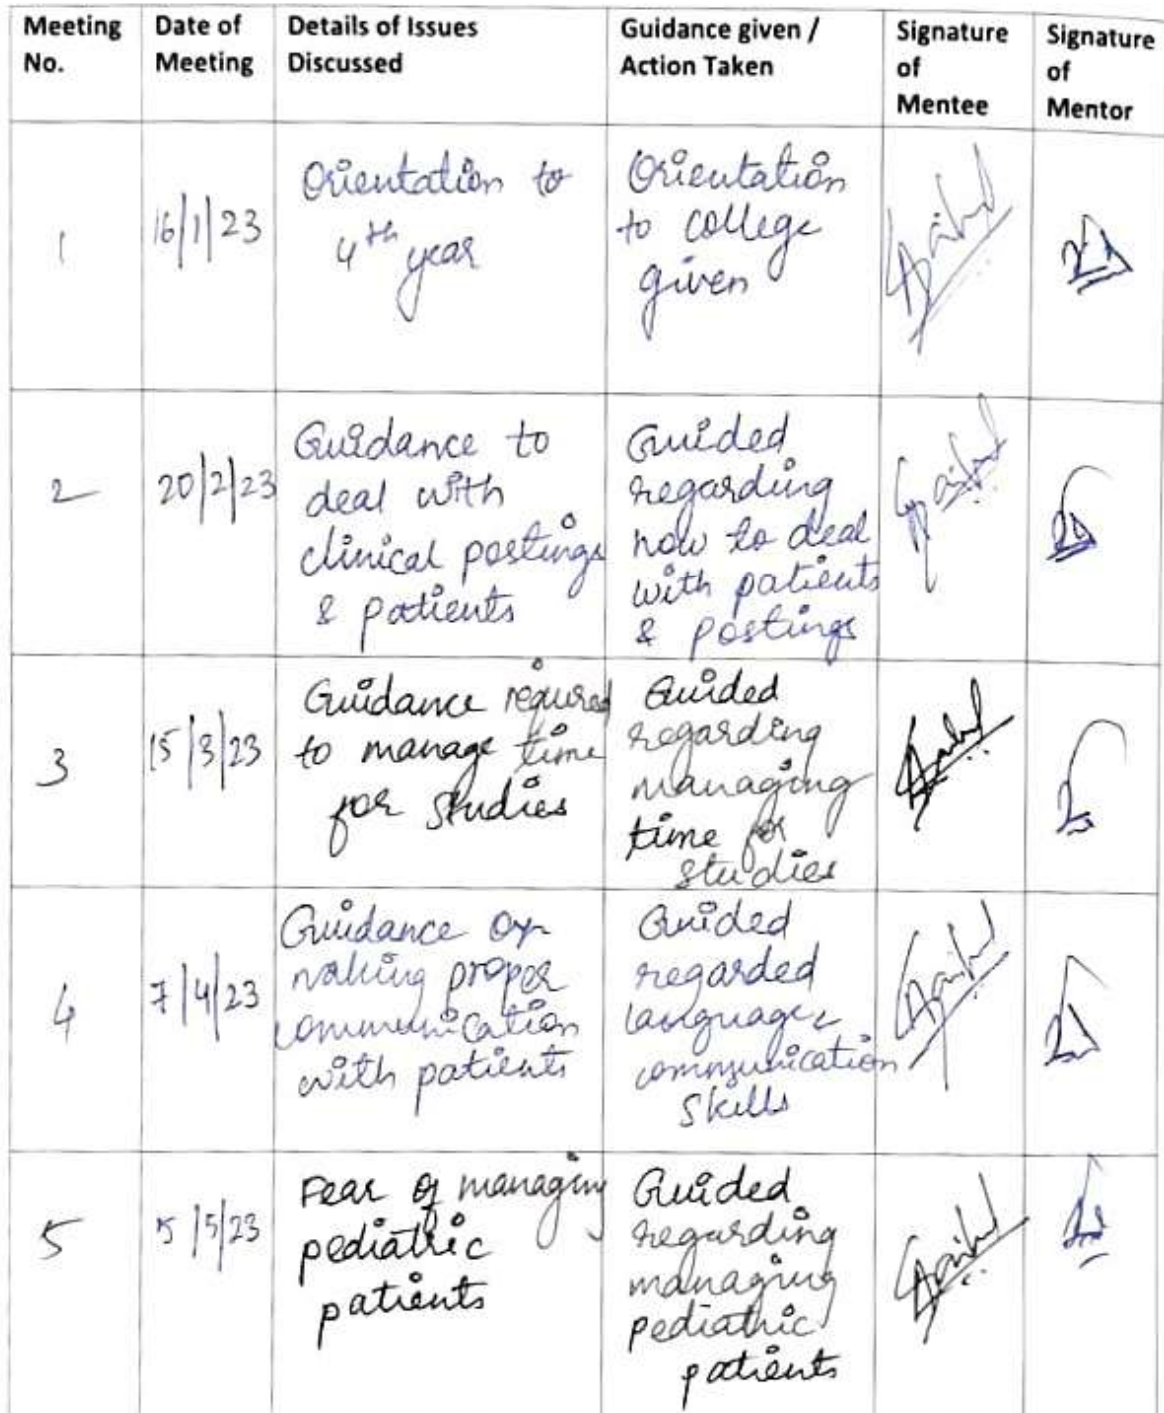 Meeting No.
Date of Meeting
Details of Issues Discussed
Guidance given / Action Taken
Signature of Mentee
Signature of Mentor
1
16/1/23
Orientation to
4th year
Orientation
to college
given
2
20/2/23
Guidance to
deal with
clinical postings
& patients
Guided
regarding
how to deal
with patients
& postings
3
15/3/23
Guidance required
to manage time
for studies
Guided
regarding
managing
time for
studies
4
7/4/23
Guidance on
making proper
communication
with patients
Guided
regarded
language
communication
skills
5
5/5/23
Fear of managing
pediatric
patients
Guided
regarding
managing
pediatric
patients